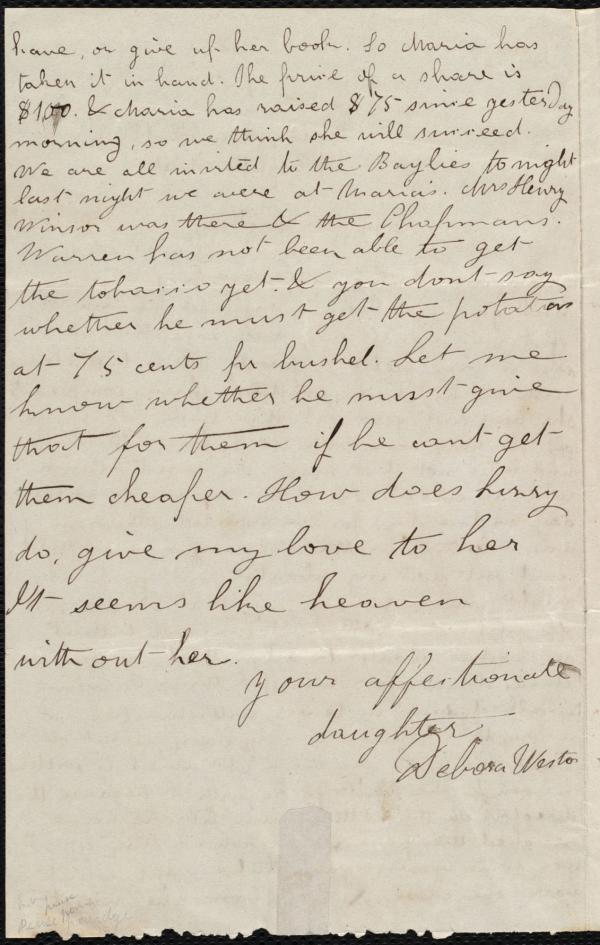 have, or give up her book. So Maria has
taken it in hand. The price of a share is
$100. & Maria has raised $75 since yesterday
morning, so we think she will succeed.
We are all invited to the Baylies to night
last night we were at Maria's. Mrs Henry
Winsor was there & the Chapmans.
Warren has not been able to get
the tobacco yet. & you dont say
whether he must get the potatoes
at 75 cents pr bushel. Let me
know whether he must give
that for them if he cant get
them cheaper. How does
do, give my love to her
It seems like heaven
with out her.
your affectionate
daughter
Debora Weston